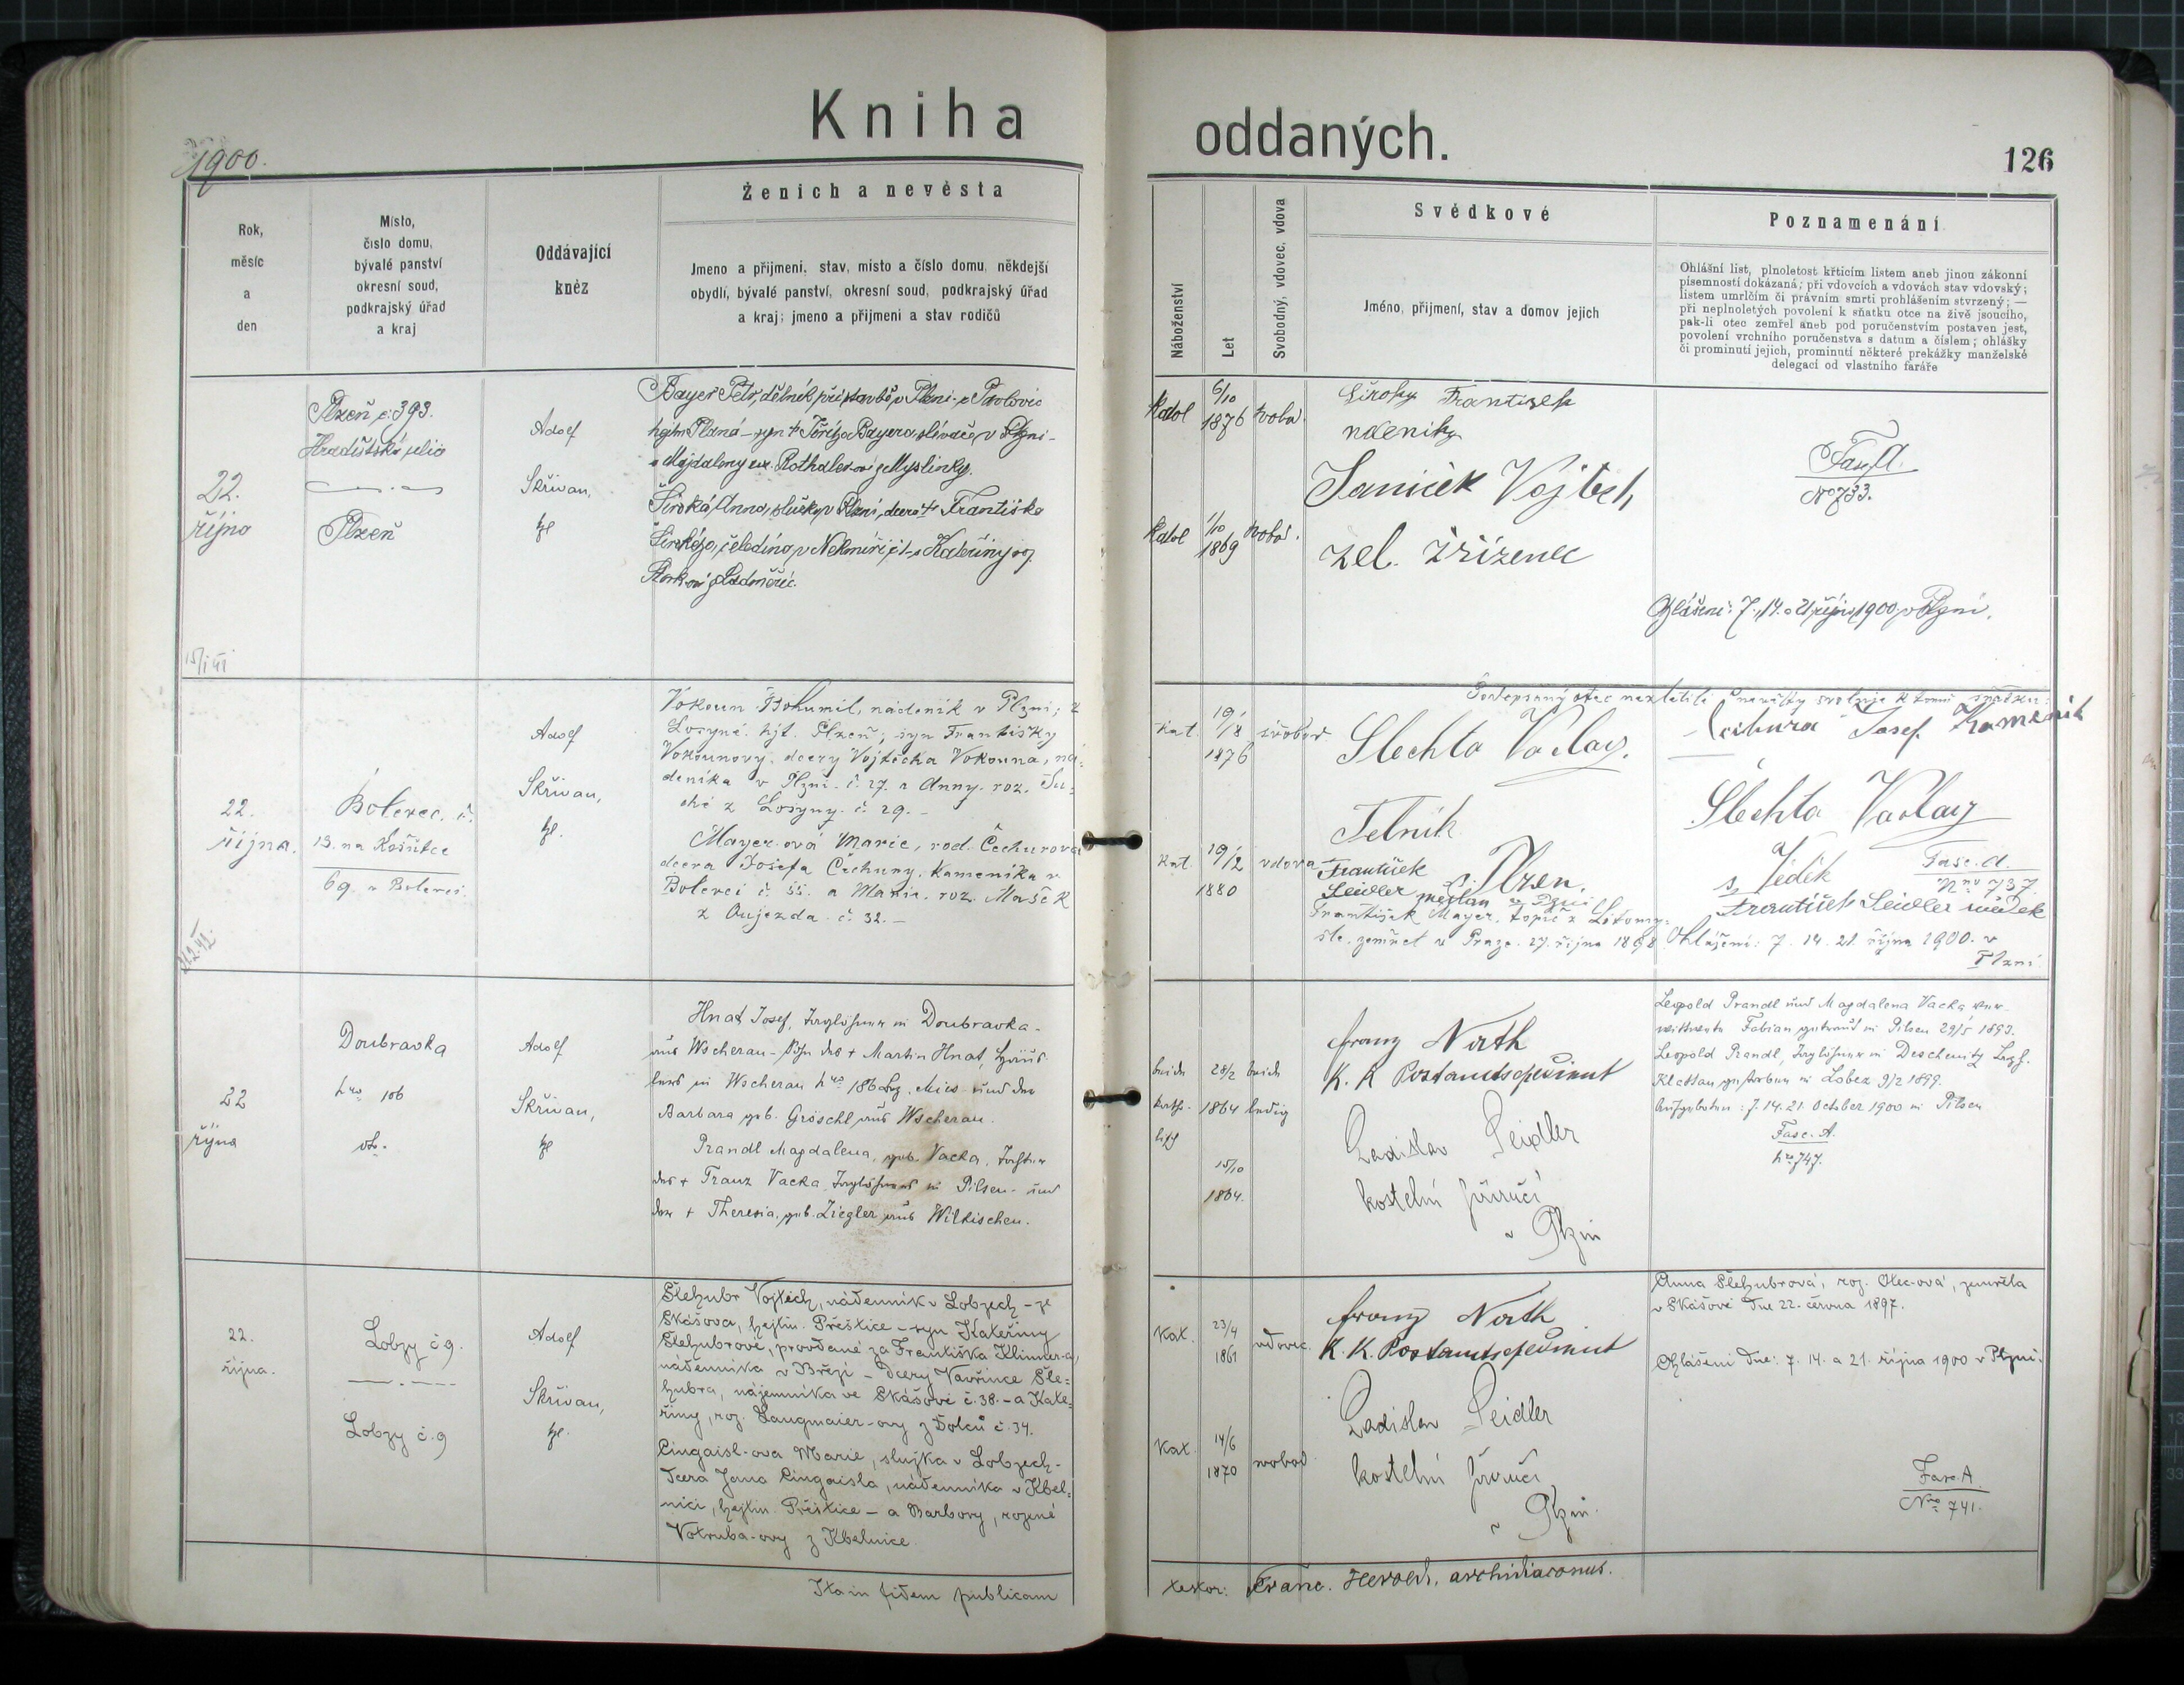 Kniha
oddaných.
1900.
126
Ženich a nevěsta
Svědkové
Poznamenání
Rok,
měsíc
a
den
Místo,
číslo domu,
bývalé panství
okresní soud,
podkrajský úřad
a kraj
Oddávající
kněz
Jmeno a přijmení, stav, místo a číslo domu, někdejší
obydlí, bývalé panství, okresní soud, podkrajský úřad
a kraj; jmeno a přijmeni a stav rodičů
Náboženství
Let
Svobodný, vdovec, vdova
Jméno, přijmení, stav a domov jejich
Ohlášní list, plnoletost křticím listem aneb jinou zákonní
písemností dokázaná; při vdovcích a vdovách stav vdovský;
listem umrlčím či právním smrti prohlášením stvrzený; —
při neplnoletých povolení k sňatku otce na živě jsoucího,
pak-li otec zemřel aneb pod poručenstvím postaven jest,
povolení vrchního poručenstva s datum a číslem; ohlášky
či prominutí jejich, prominutí některé prekážky manželské
delegací od vlastního faráře
22.
října
Plzeň č. 393.
Plzeň
Adolf
Skřivan,
Bayer Petr, dělník při stavbě v Plzni - z Pavlovic
hejtm. Planá - syn + Bayera slévače v Plzni -
a Magdaleny z Myslinky.
Široká Anna, služka v Plzni, dcera + Františka
Širokého, čeledína v Nekmíři č. 1 - a Kateřiny roz.
Katol
6/10
1876
svobod.
Široky František
Janiček Vojtěch
zel. zřízenec
Katol
1/10
1869
svobod.
Fasc. A.
No 733.
Ohlášeni: 7., 14. a 21. října 1900 v Plzni.
22.
října.
Bolevec. č.
13. na Košutce
69. v Bolevci.
Adolf
Skřivan,
Vokoun Bohumil, nádeník v Plzni; z
Losyné. hjt. Plzeň; syn Františky
Vokounovy, dcery Vojtěcha Vokouna, ná-
deníka v Plzni. č. 27. a Anny. roz. Su-
ché z Losyny. č. 29. -
Mayer-ová Marie, rod. Čechurova
dcera Josefa Čechury, kameníka v
Bolevci č. 55. a Marie. roz. Mašek
z Oujezda. č. 32. -
Kat.
19/8
1876
svobod
Šlechta Vaclav.
Plzen.
Kat.
19/2
1880
vdova
František
Seidler mešťan v Plzni
František Mayer, topič z Litomy-
šle, zemřel v Praze. 27. října 1898
Podepsaný otec nezletilé nevěsty svoluje k tomu sňatku:
Čechura Josef Kameník
Šlechta Vaclav
Fasc. A.
Nro 737.
František Seidler svědek
Ohlášeni: 7. 14. 21. října 1900. v
Plzni.
22
října
Doubravka
Nro 106
Adolf
Skřivan,
Hnat Josef, Taglöhner in Doubravka -
aus Wscherau - Sohn des + Martin Hnat,
in Wscherau Nro 186 Bez. Mies und der
Barbara geb. Gröschl aus Wscherau.
Prandl Magdalena, geb. Vacka, Tochter
des + Franz Vacka, Taglöhners in Pilsen - und
der + Theresia, geb. Ziegler aus Wilkischen.
beide
kath-
lisch
28/2
1864
15/10
1864.
beide
ledig
Franz North
K. K. Postamtsexpedient
Ladislav Seidler
kostelní
v Plzni
Leopold Prandl und Magdalena Vacka, ver-
wittwete Fabian getraut in Pilsen 29/5 1893.
Leopold Prandl, Taglöhner in Deschenitz Bezh.
Klattau gestorben in Lobes 9/2 1899.
Aufgeboten: 7. 14. 21. October 1900 in Pilsen
Fasc. A.
Nro 747.
22.
října.
Lobzy č 9.
Lobzy č. 9
Adolf
Skřivan,
Šlehubr Vojtěch, nádenník v Lobzech - ze
Skášova, hejtm. Přeštice - syn Kateřiny
Šlehubrové, provdané za Františka Klimer-a,
nádenníka v Březí - dcery Vavřince Šle-
hubra, nájemníka ve Skášově č. 38. - a Kate-
řiny, roz. Langmaier-ovy z Dolců č. 34.
Cingaisl-ova Marie, služka v Lobzech -
dcera Jana Cingaisla, nádenníka v Kbel-
nici, hejtm. Přeštice - a Barbory, rozené
Votruba-ovy z Kbelnice.
Kat.
23/4
1861
vdovec.
Kat.
14/6
1870
svobod
Franz North
K. K. Postamtsexpedient
Ladislav Seidler
kostelní
v Plzni.
Anna Šlehubrová, roz. Olec-ová, zemřela
v Skášově dne 22. června 1897.
Ohlášeni dne: 7. 14. a 21. října 1900 v Plzni.
Fasc. A.
Nro 741.
Ita in fidem publicam
testor: Franc. Herold, archidiaconus.